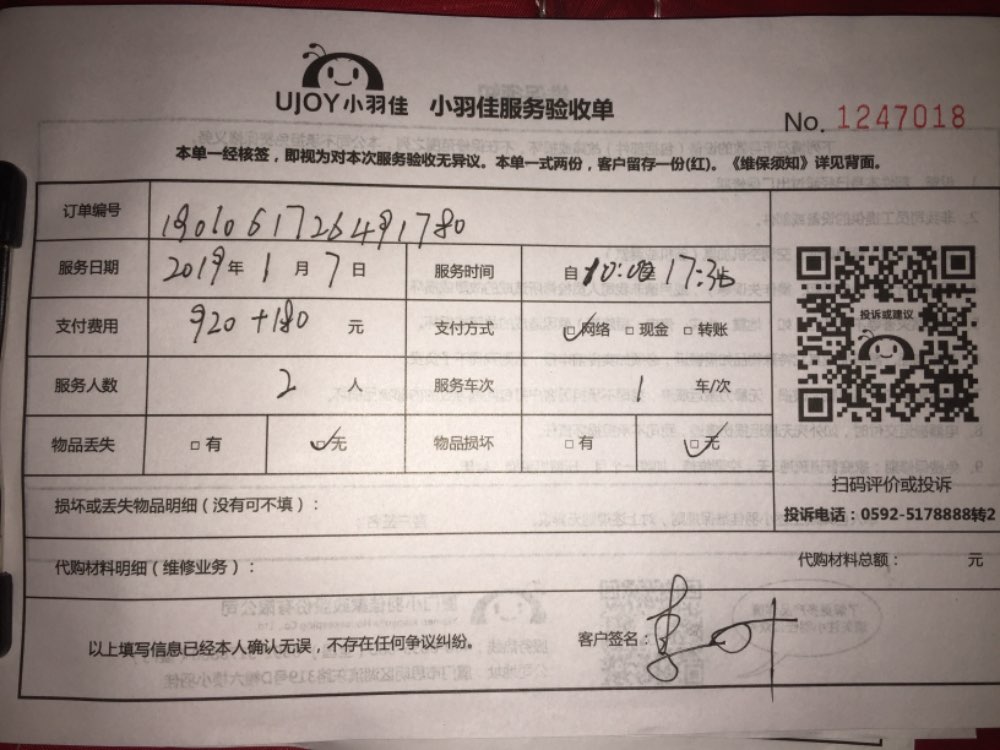 UJOY小羽佳 小羽佳服务验收单
No. 1247018
本单一经核签，即视为对本次服务验收无异议。本单一式两份，客户留存一份(红)。《维保须知》详见背面。
订单编号 1901061726491780
服务日期 2019年1月7日 服务时间 自10:00至17:30止
支付费用 920+180 元 支付方式 ☑网络 □现金 □转账
服务人数 2 人 服务车次 1 车/次
物品丢失 □有 ☑无 物品损坏 □有 ☑无
投诉或建议
扫码评价或投诉
投诉电话：0592-5178888转2
损坏或丢失物品明细（没有可不填）：
代购材料明细（维修业务）： 代购材料总额： 元
以上填写信息已经本人确认无误，不存在任何争议纠纷。 客户签名：